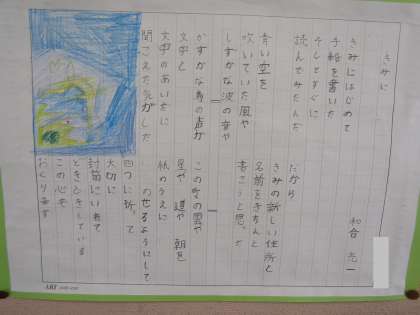 きみに
和合 亮一
きみにはじめて
手紙を書いた
そしてすぐに
読んでみたんだ
青い空を
吹いていた風や
しずかな波の音や
かすかな鳥の声が
文字と
文字のあいだに
聞こえた気がした
だから
きみの新しい住所と
名前をきちんと
書こうと思った
この町の雲や
星や 道や 朝を
紙のうえに
のせるようにして
四つに折って
大切に
封筒にいれて
ときどきしている
この心を
おくります